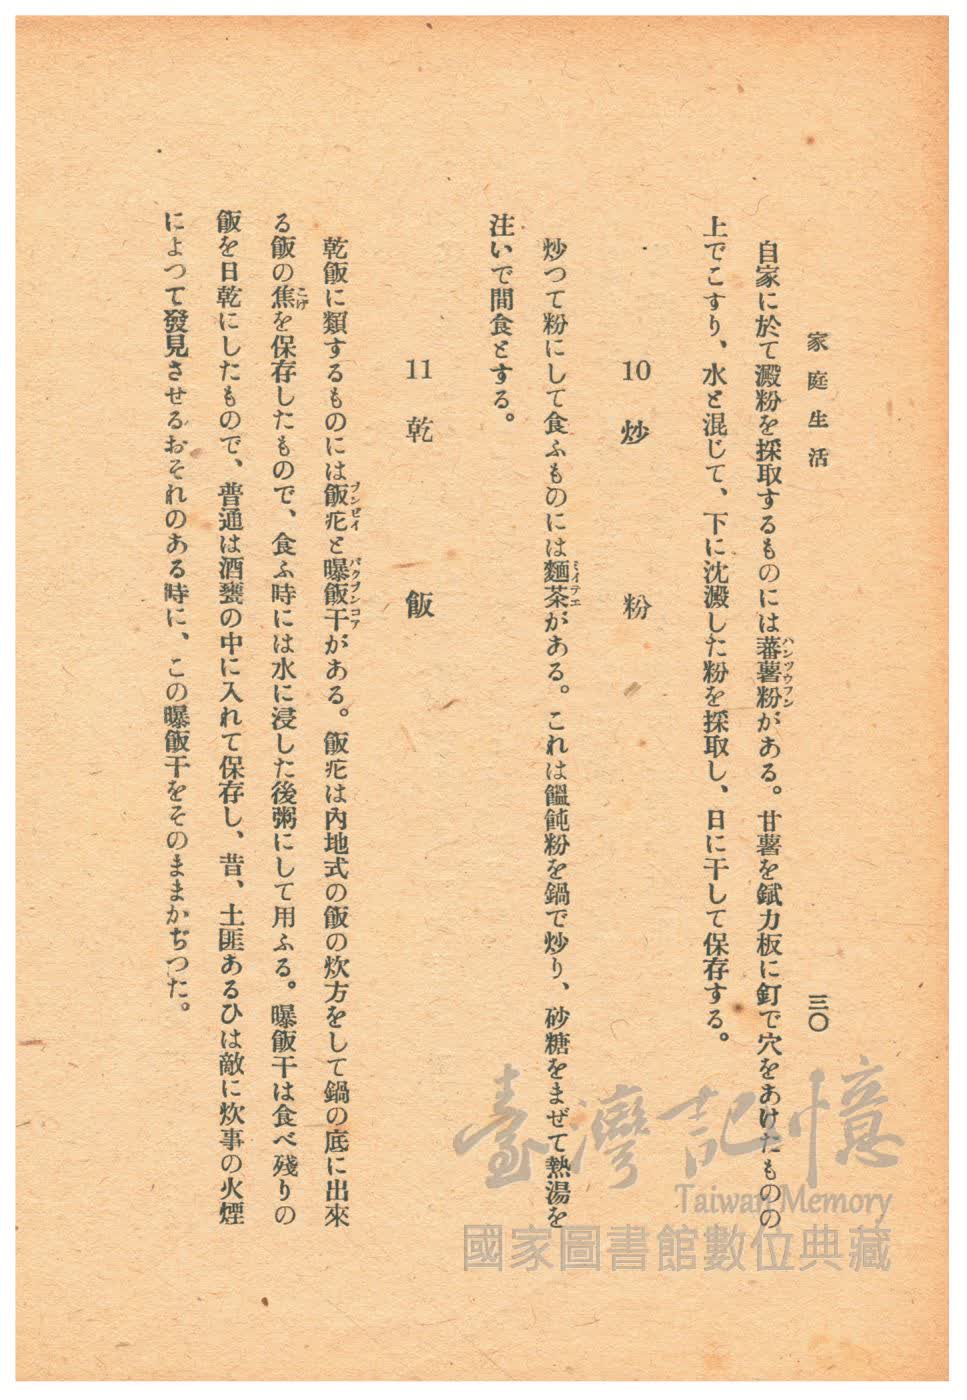 家庭生活
三〇
自家に於て澱粉を採取するものには蕃薯粉がある。甘薯を鉽力板に釘で穴をあけたものの
ハンツウフン
上でこすり、水と混じて、下に沈澱した粉を採取し、日に干して保存する。
10 炒粉
炒つて粉にして食ふものには麵茶がある。これは饂飩粉を鍋で炒り、砂糖をまぜて熱湯を
ミイテエ
注いで間食とする。
11 乾飯
乾飯に類するものには飯疕と曝飯干がある。飯疕は內地式の飯の炊方をして鍋の底に出來
プンピイ
パクプンコア
る飯の焦を保存したもので、食ふ時には水に浸した後粥にして用ふる。曝飯干は食べ殘りの
こげ
飯を日乾にしたもので、普通は酒甕の中に入れて保存し、昔、土匪あるひは敵に炊事の火煙
によつて發見させるおそれのある時に、この曝飯干をそのままかぢつた。
臺灣記憶
Taiwan Memory
國家圖書館數位典藏